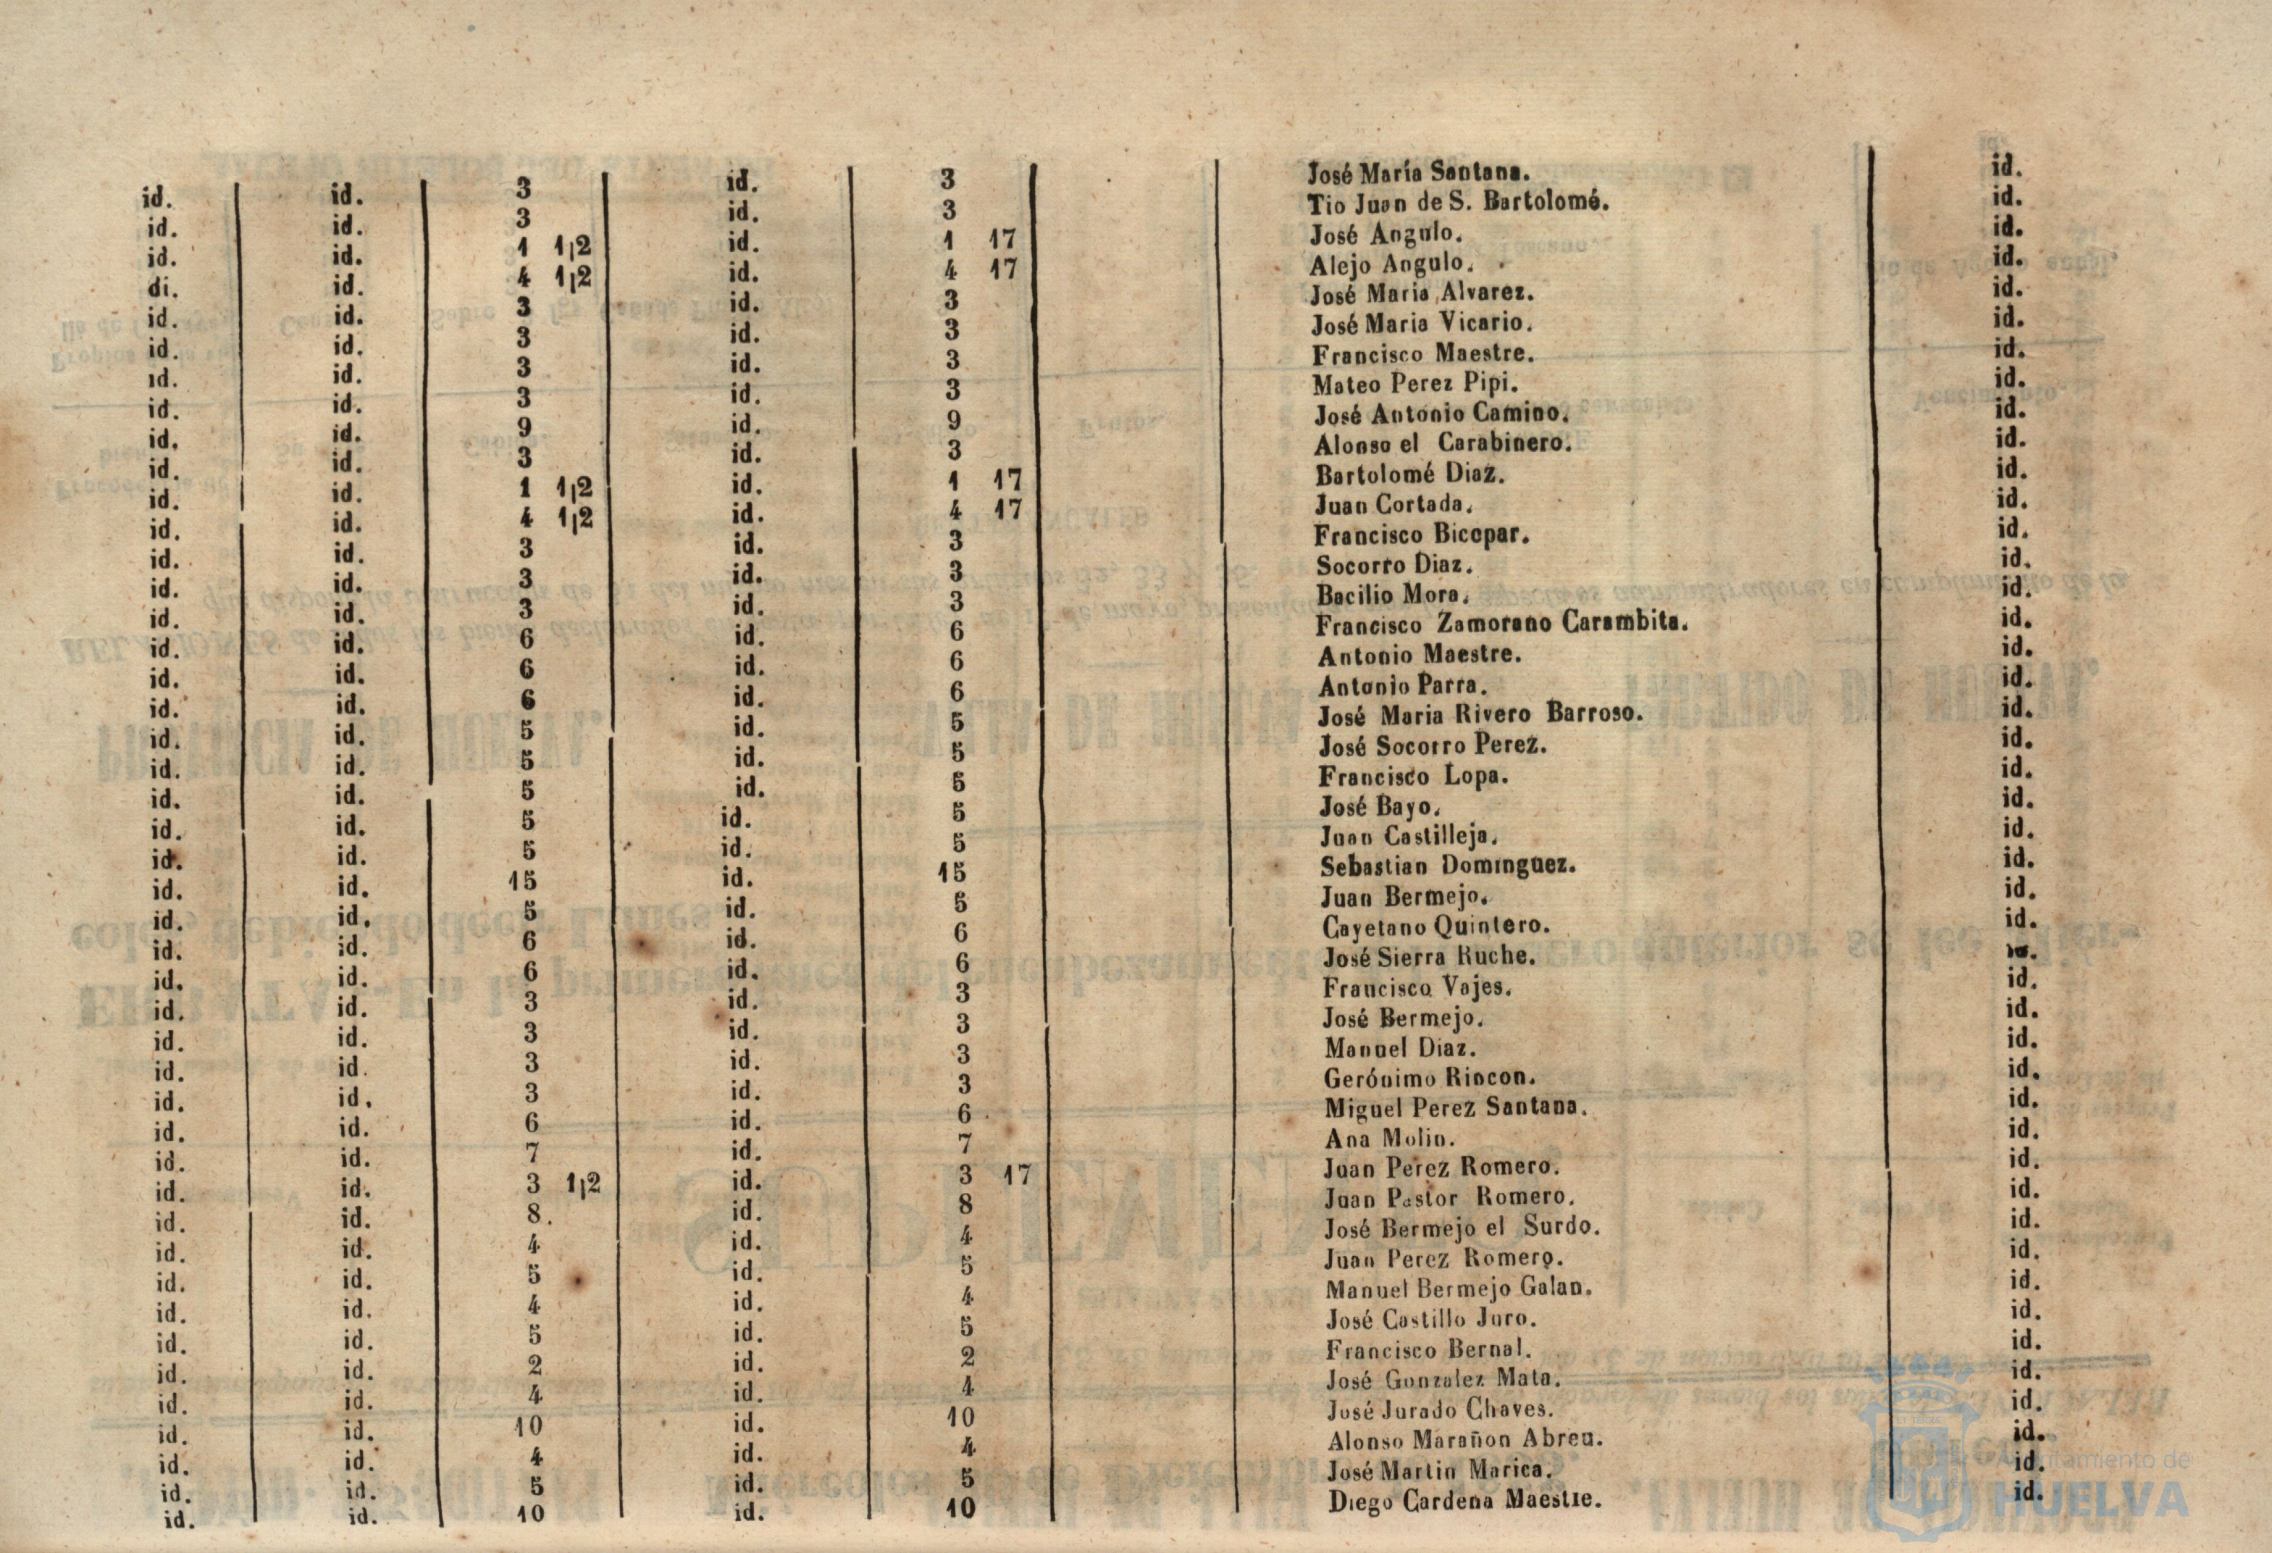 id. id. 3 id. 3 José María Santana. id.
id. id. 3 id. 3 Tio Juan de S. Bartolomé. id.
id. id. 1 1|2 id. 1 17 José Angulo. id.
di. id. 4 1|2 id. 4 17 Alejo Angulo. id.
id. id. 3 id. 3 José Maria Alvarez. id.
id. id. 3 id. 3 José Maria Vicario. id.
id. id. 3 id. 3 Francisco Maestre. id.
id. id. 3 id. 3 Mateo Perez Pipi. id.
id. id. 9 id. 9 José Antonio Camino. id.
id. id. 3 id. 3 Alonso el Carabinero. id.
id. id. 1 1|2 id. 1 17 Bartolomé Diaz. id.
id. id. 4 1|2 id. 4 17 Juan Cortada. id.
id. id. 3 id. 3 Francisco Bicopar. id.
id. id. 3 id. 3 Socorro Diaz. id.
id. id. 3 id. 3 Bacilio Mora. id.
id. id. 6 id. 6 Francisco Zamorano Carambita. id.
id. id. 6 id. 6 Antonio Maestre. id.
id. id. 6 id. 6 Antonio Parra. id.
id. id. 5 id. 5 José Maria Rivero Barroso. id.
id. id. 5 id. 5 José Socorro Perez. id.
id. id. 5 id. 5 Francisco Lopa. id.
id. id. 5 id. 5 José Bayo. id.
id. id. 5 id. 5 Juan Castilleja. id.
id. id. 15 id. 15 Sebastian Dominguez. id.
id. id. 5 id. 5 Juan Bermejo. id.
id. id. 6 id. 6 Cayetano Quintero. id.
id. id. 6 id. 6 José Sierra Ruche.
id. id. 3 id. 3 Francisco Vajes. id.
id. id. 3 id. 3 José Bermejo. id.
id. id. 3 id. 3 Manuel Diaz. id.
id. id. 3 id. 3 Gerónimo Rincon. id.
id. id. 6 id. 6 Miguel Perez Santana. id.
id. id. 7 id. 7 Ana Molin. id.
id. id. 3 1|2 id. 3 17 Juan Perez Romero. id.
id. id. 8. id. 8 Juan Pastor Romero. id.
id. id. 4 id. 4 José Bermejo el Surdo. id.
id. id. 5 id. 5 Juan Perez Romero. id.
id. id. 4 id. 4 Manuel Bermejo Galan. id.
id. id. 5 id. 5 José Castillo Juro. id.
id. id. 2 id. 2 Francisco Bernal. id.
id. id. 4 id. 4 José Gonzalez Mata. id.
id. id. 10 id. 10 José Jurado Chaves. id.
id. id. 4 id. 4 Alonso Marañon Abreu. id.
id. id. 5 id. 5 José Martin Marica. id.
id. id. 10 id. 10 Diego Cardena Maestre. id.
Ayuntamiento de
HUELVA